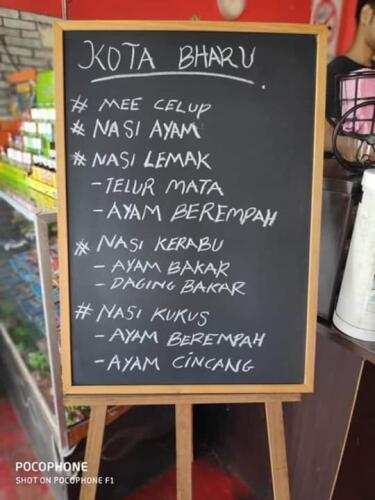 KOTA BHARU.
# MEE CELUP
# NASI AYAM
# NASI LEMAK
- TELUR MATA
- AYAM BEREMPAH
# NASI KERABU
- AYAM BAKAR
- DAGING BAKAR
# NASI KUKUS
- AYAM BEREMPAH
- AYAM CINCANG
POCOPHONE
SHOT ON POCOPHONE F1